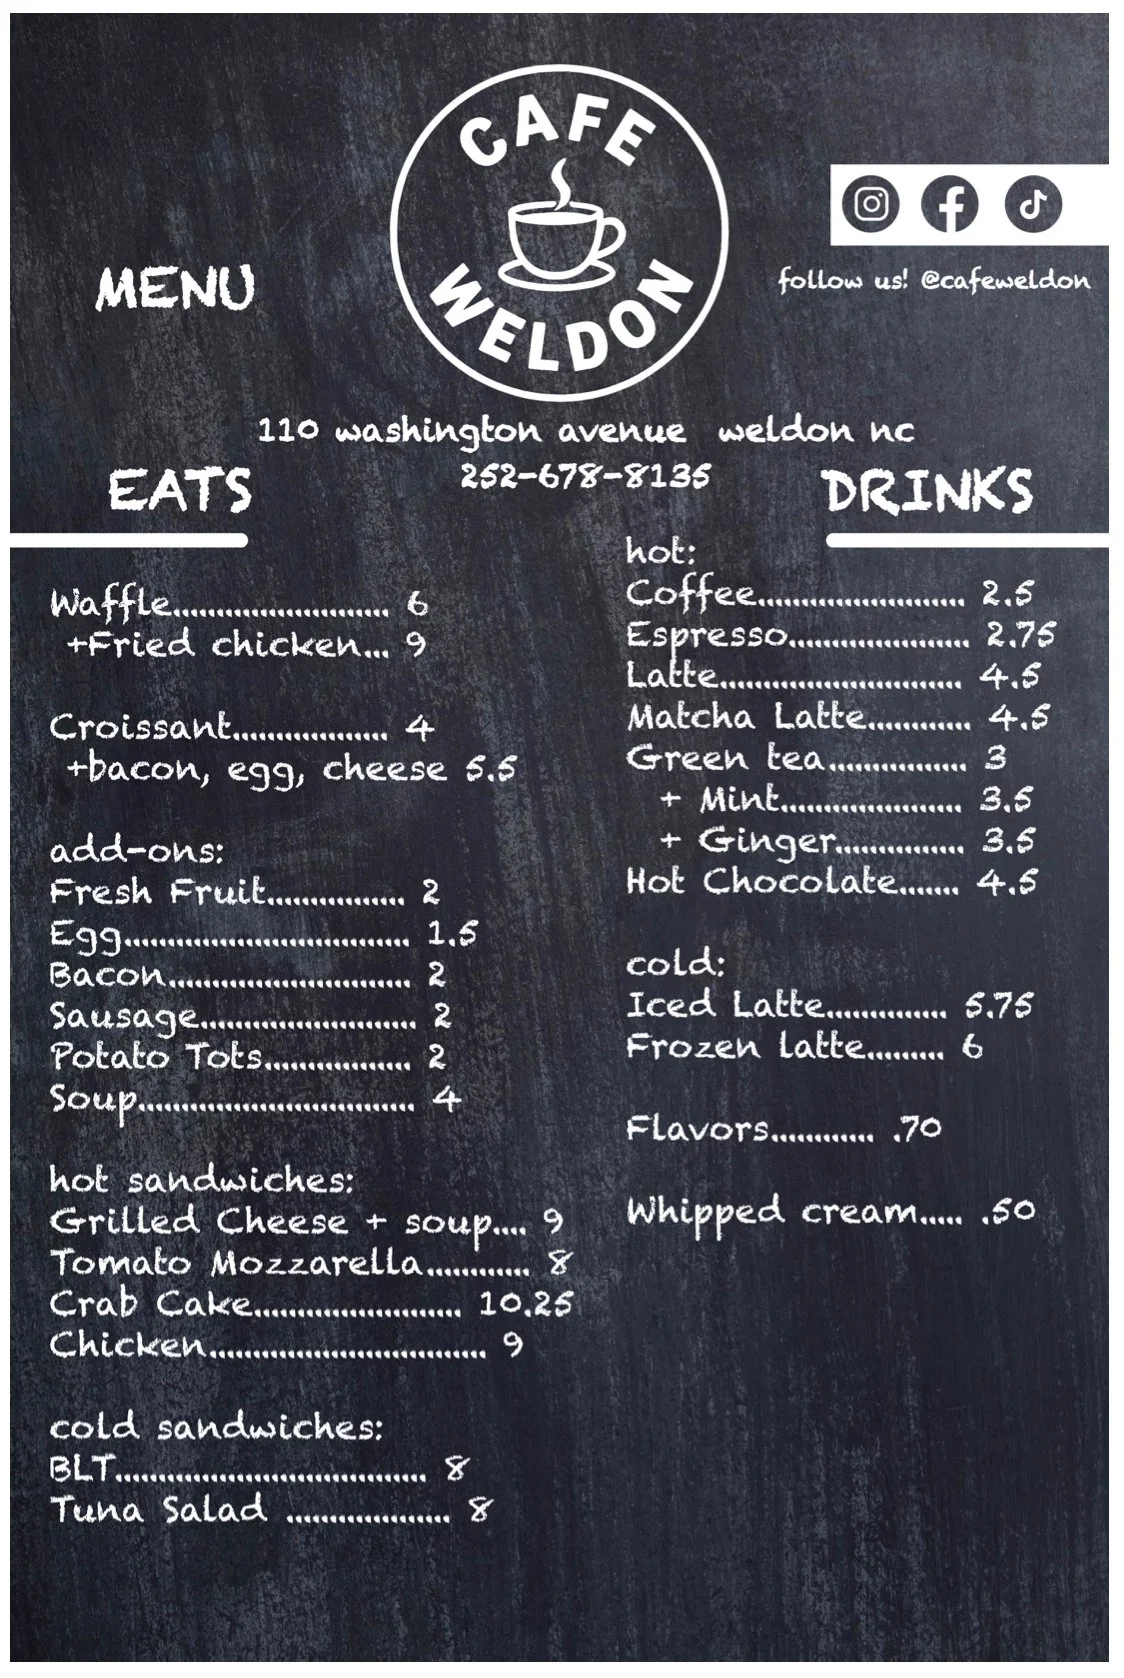 CAFE
WELDON
MENU
follow us! @cafeweldon
110 washington avenue weldon nc
252-678-8135
EATS
Waffle........................ 6
+Fried chicken... 9
Croissant.................. 4
+bacon, egg, cheese 5.5
add-ons:
Fresh Fruit................ 2
Egg................................. 1.5
Bacon............................ 2
Sausage......................... 2
Potato Tots................. 2
Soup................................ 4
hot sandwiches:
Grilled Cheese + soup.... 9
Tomato Mozzarella............ 8
Crab Cake........................ 10.25
Chicken................................ 9
cold sandwiches:
BLT.................................... 8
Tuna Salad ................... 8
DRINKS
hot:
Coffee........................ 2.5
Espresso..................... 2.75
Latte............................ 4.5
Matcha Latte............ 4.5
Green tea................ 3
+ Mint..................... 3.5
+ Ginger............... 3.5
Hot Chocolate....... 4.5
cold:
Iced Latte.............. 5.75
Frozen latte......... 6
Flavors............ .70
Whipped cream..... .50